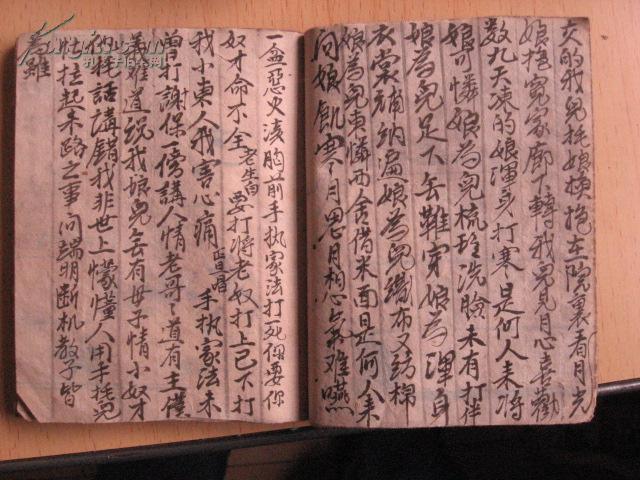 交的我兒抚娘换抱在院裏看月光
娘捂寬家廊下轉我兒見月心喜歡
数九天凍的娘渾身打寒是何人来将
娘可憐娘為兒梳拴洗臉未有打拌
娘為兒足下無難穿娘為渾身
衣裳補納遍娘為兒織布又紡棉
娘為兒東憐西舍借米面是何人来
问娘飢寒月思月想心氣难嚥
一盆惡火湊胸前手执家法打死你要你
奴才命不全老生白要打将老奴打上已下打
我小東人我害心痛正旦唱手执家法未
曽打謝保一傍講人情老哥之道有主僕
義难道说我娘兒無有母子情小奴才
你抚話講錯我非世上懞憧人用手抚兒
忙拉起来路之事问端明断机教子皆
為雖